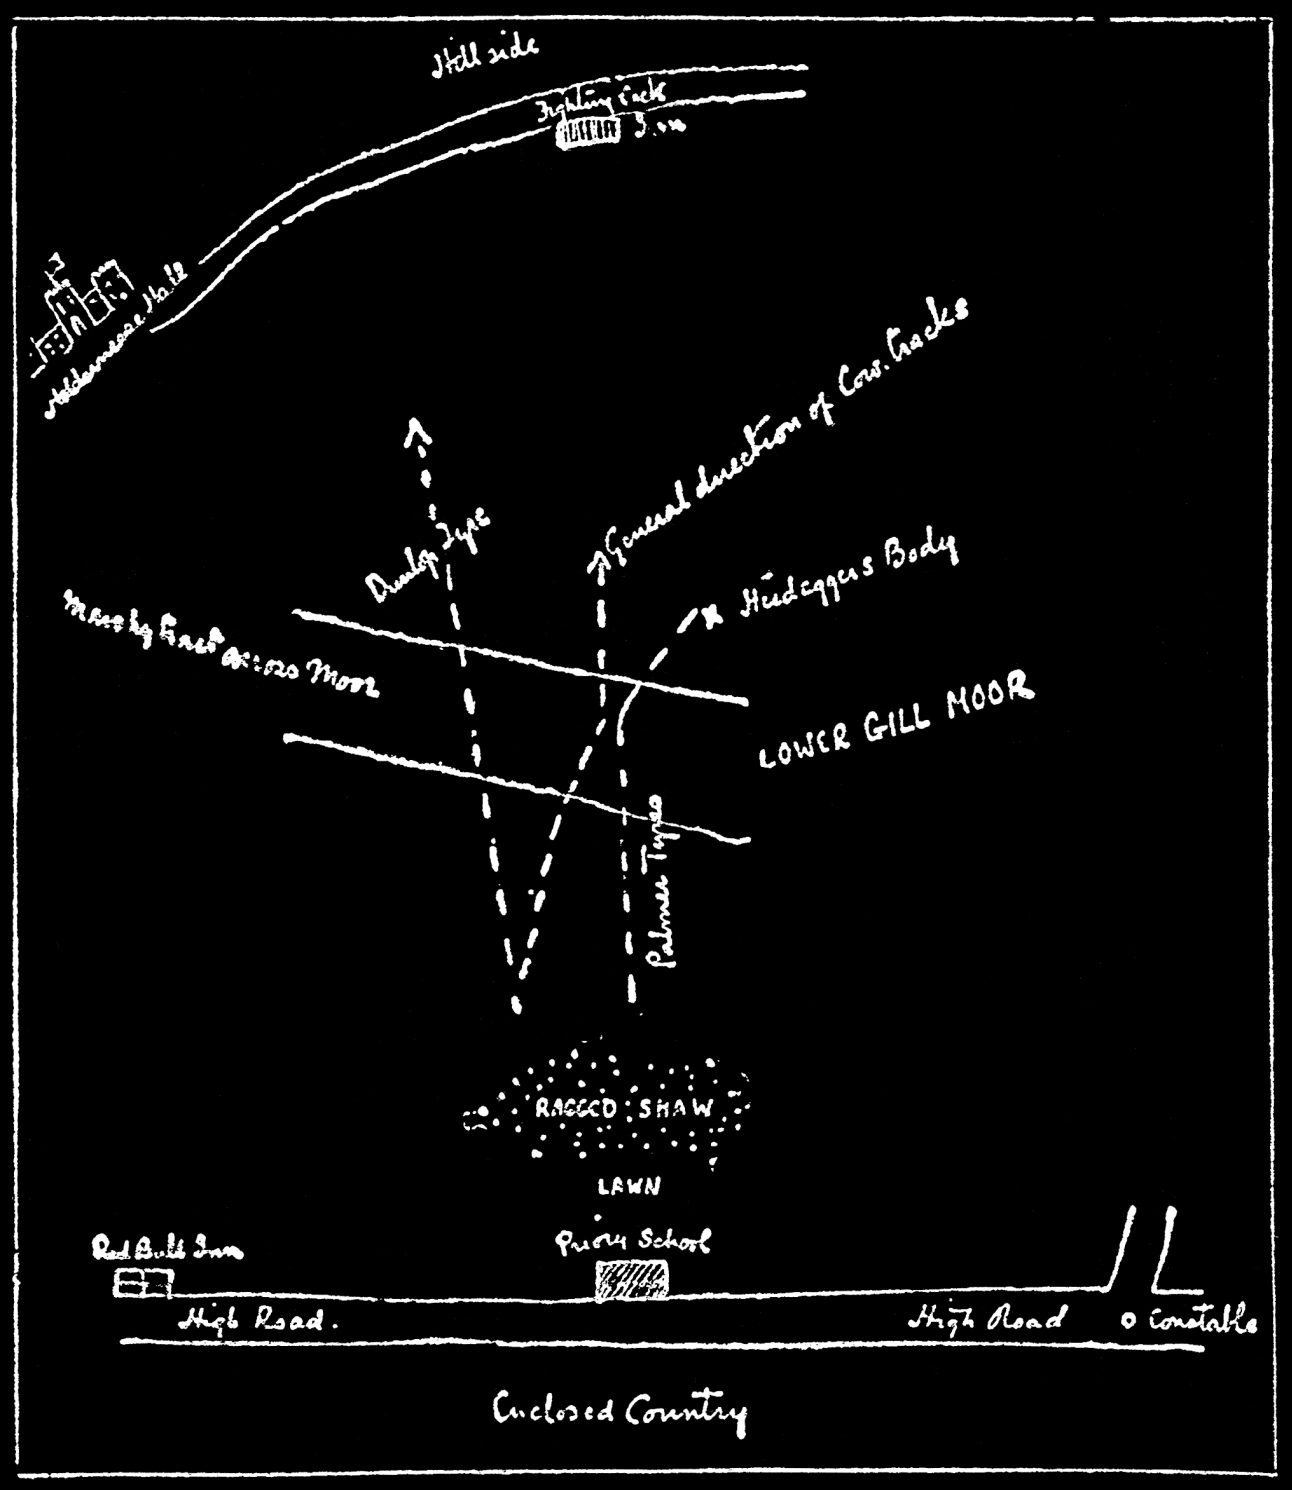 Hill side
Fighting Cock
Inn
Holdernesse Hall
General direction of Cow. tracks
Dunlop Tyre
Heideggers Body
Marshy tract across Moor
LOWER GILL MOOR
Palmer Tyres
RAGGED SHAW
LAWN
Priory School
Red Bull Inn
High Road.
High Road
Constable
Enclosed Country